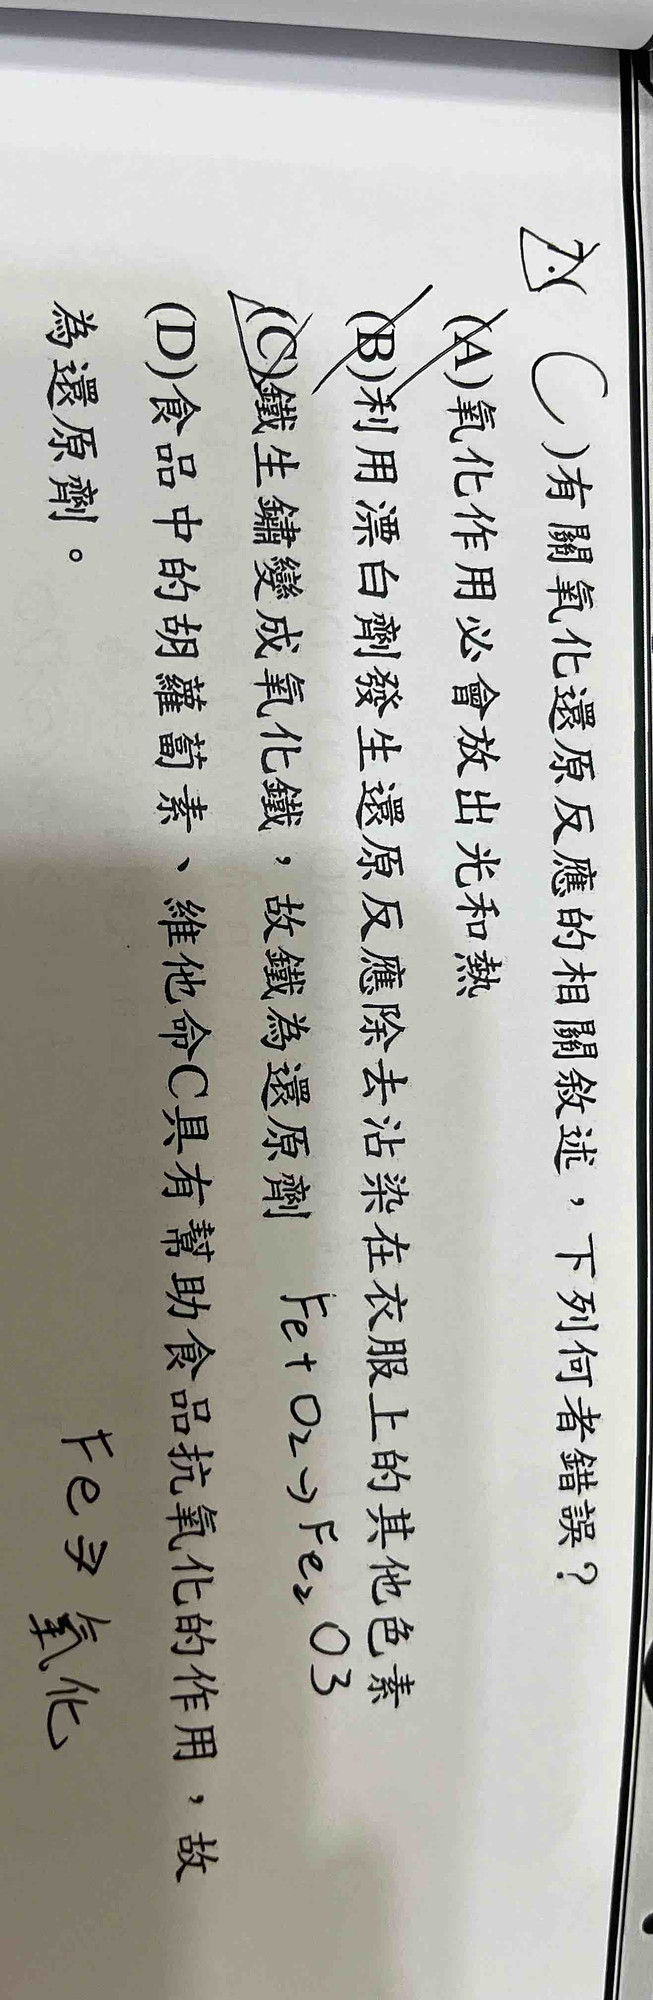 7.( C )有關氧化還原反應的相關敘述，下列何者錯誤？
(A)氧化作用必會放出光和熱
(B)利用漂白劑發生還原反應除去沾染在衣服上的其他色素
(C)鐵生鏽變成氧化鐵，故鐵為還原劑 Fe+O2→Fe2O3
(D)食品中的胡蘿蔔素、維他命C具有幫助食品抗氧化的作用，故
為還原劑。
Fe⇒氧化